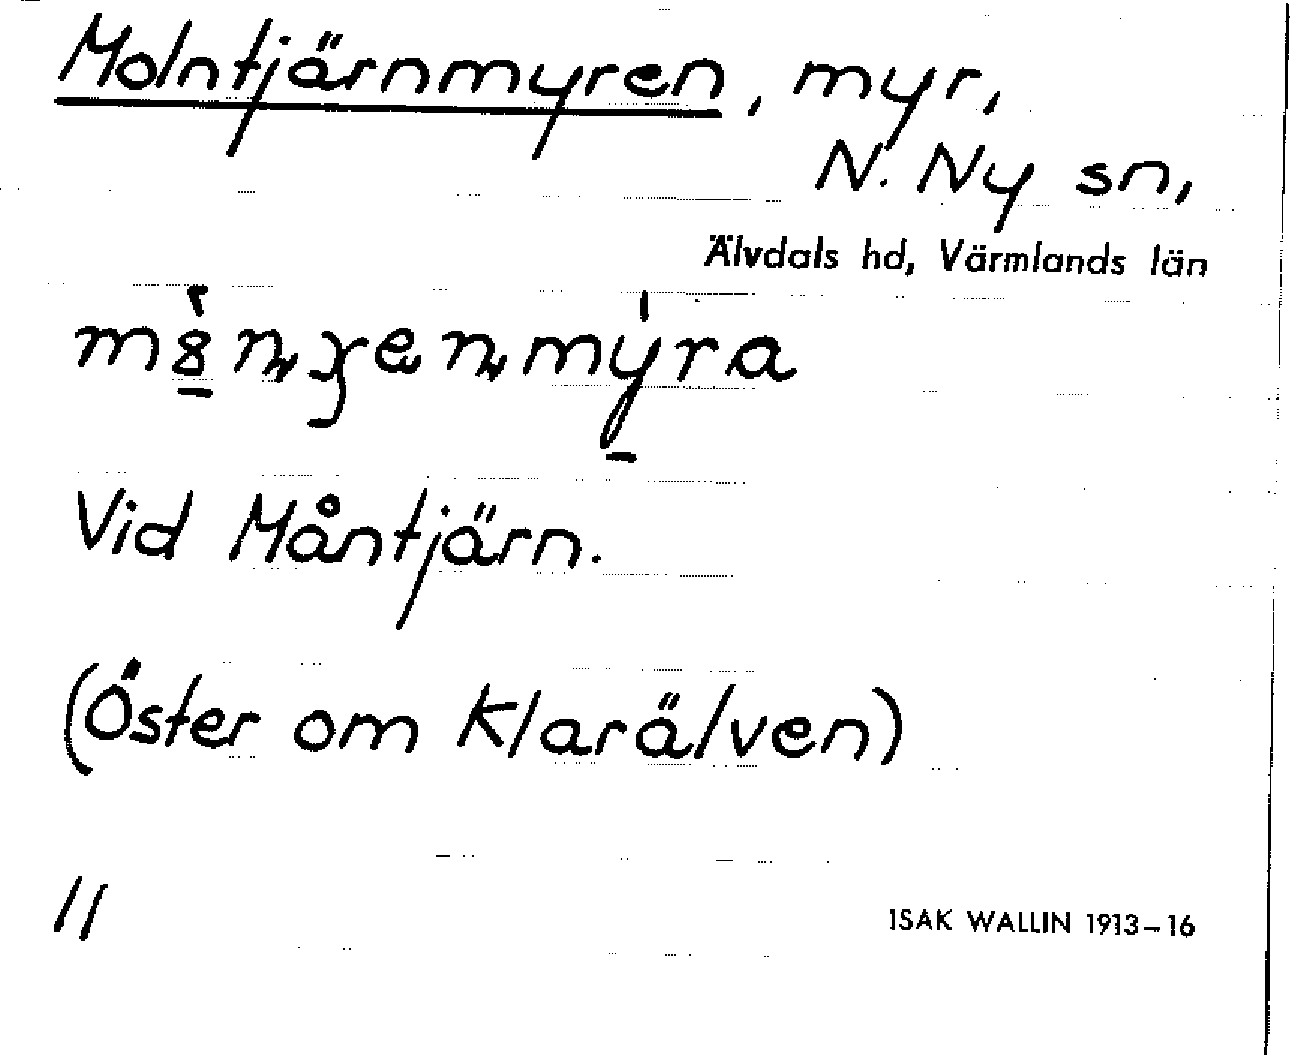 Molntjärnmyren, myr,
N. Ny sn,
Älvdals hd, Värmlands län
Vid Måntjärn.
(Öster om Klarälven)
11
ISAK WALLIN 1913–16